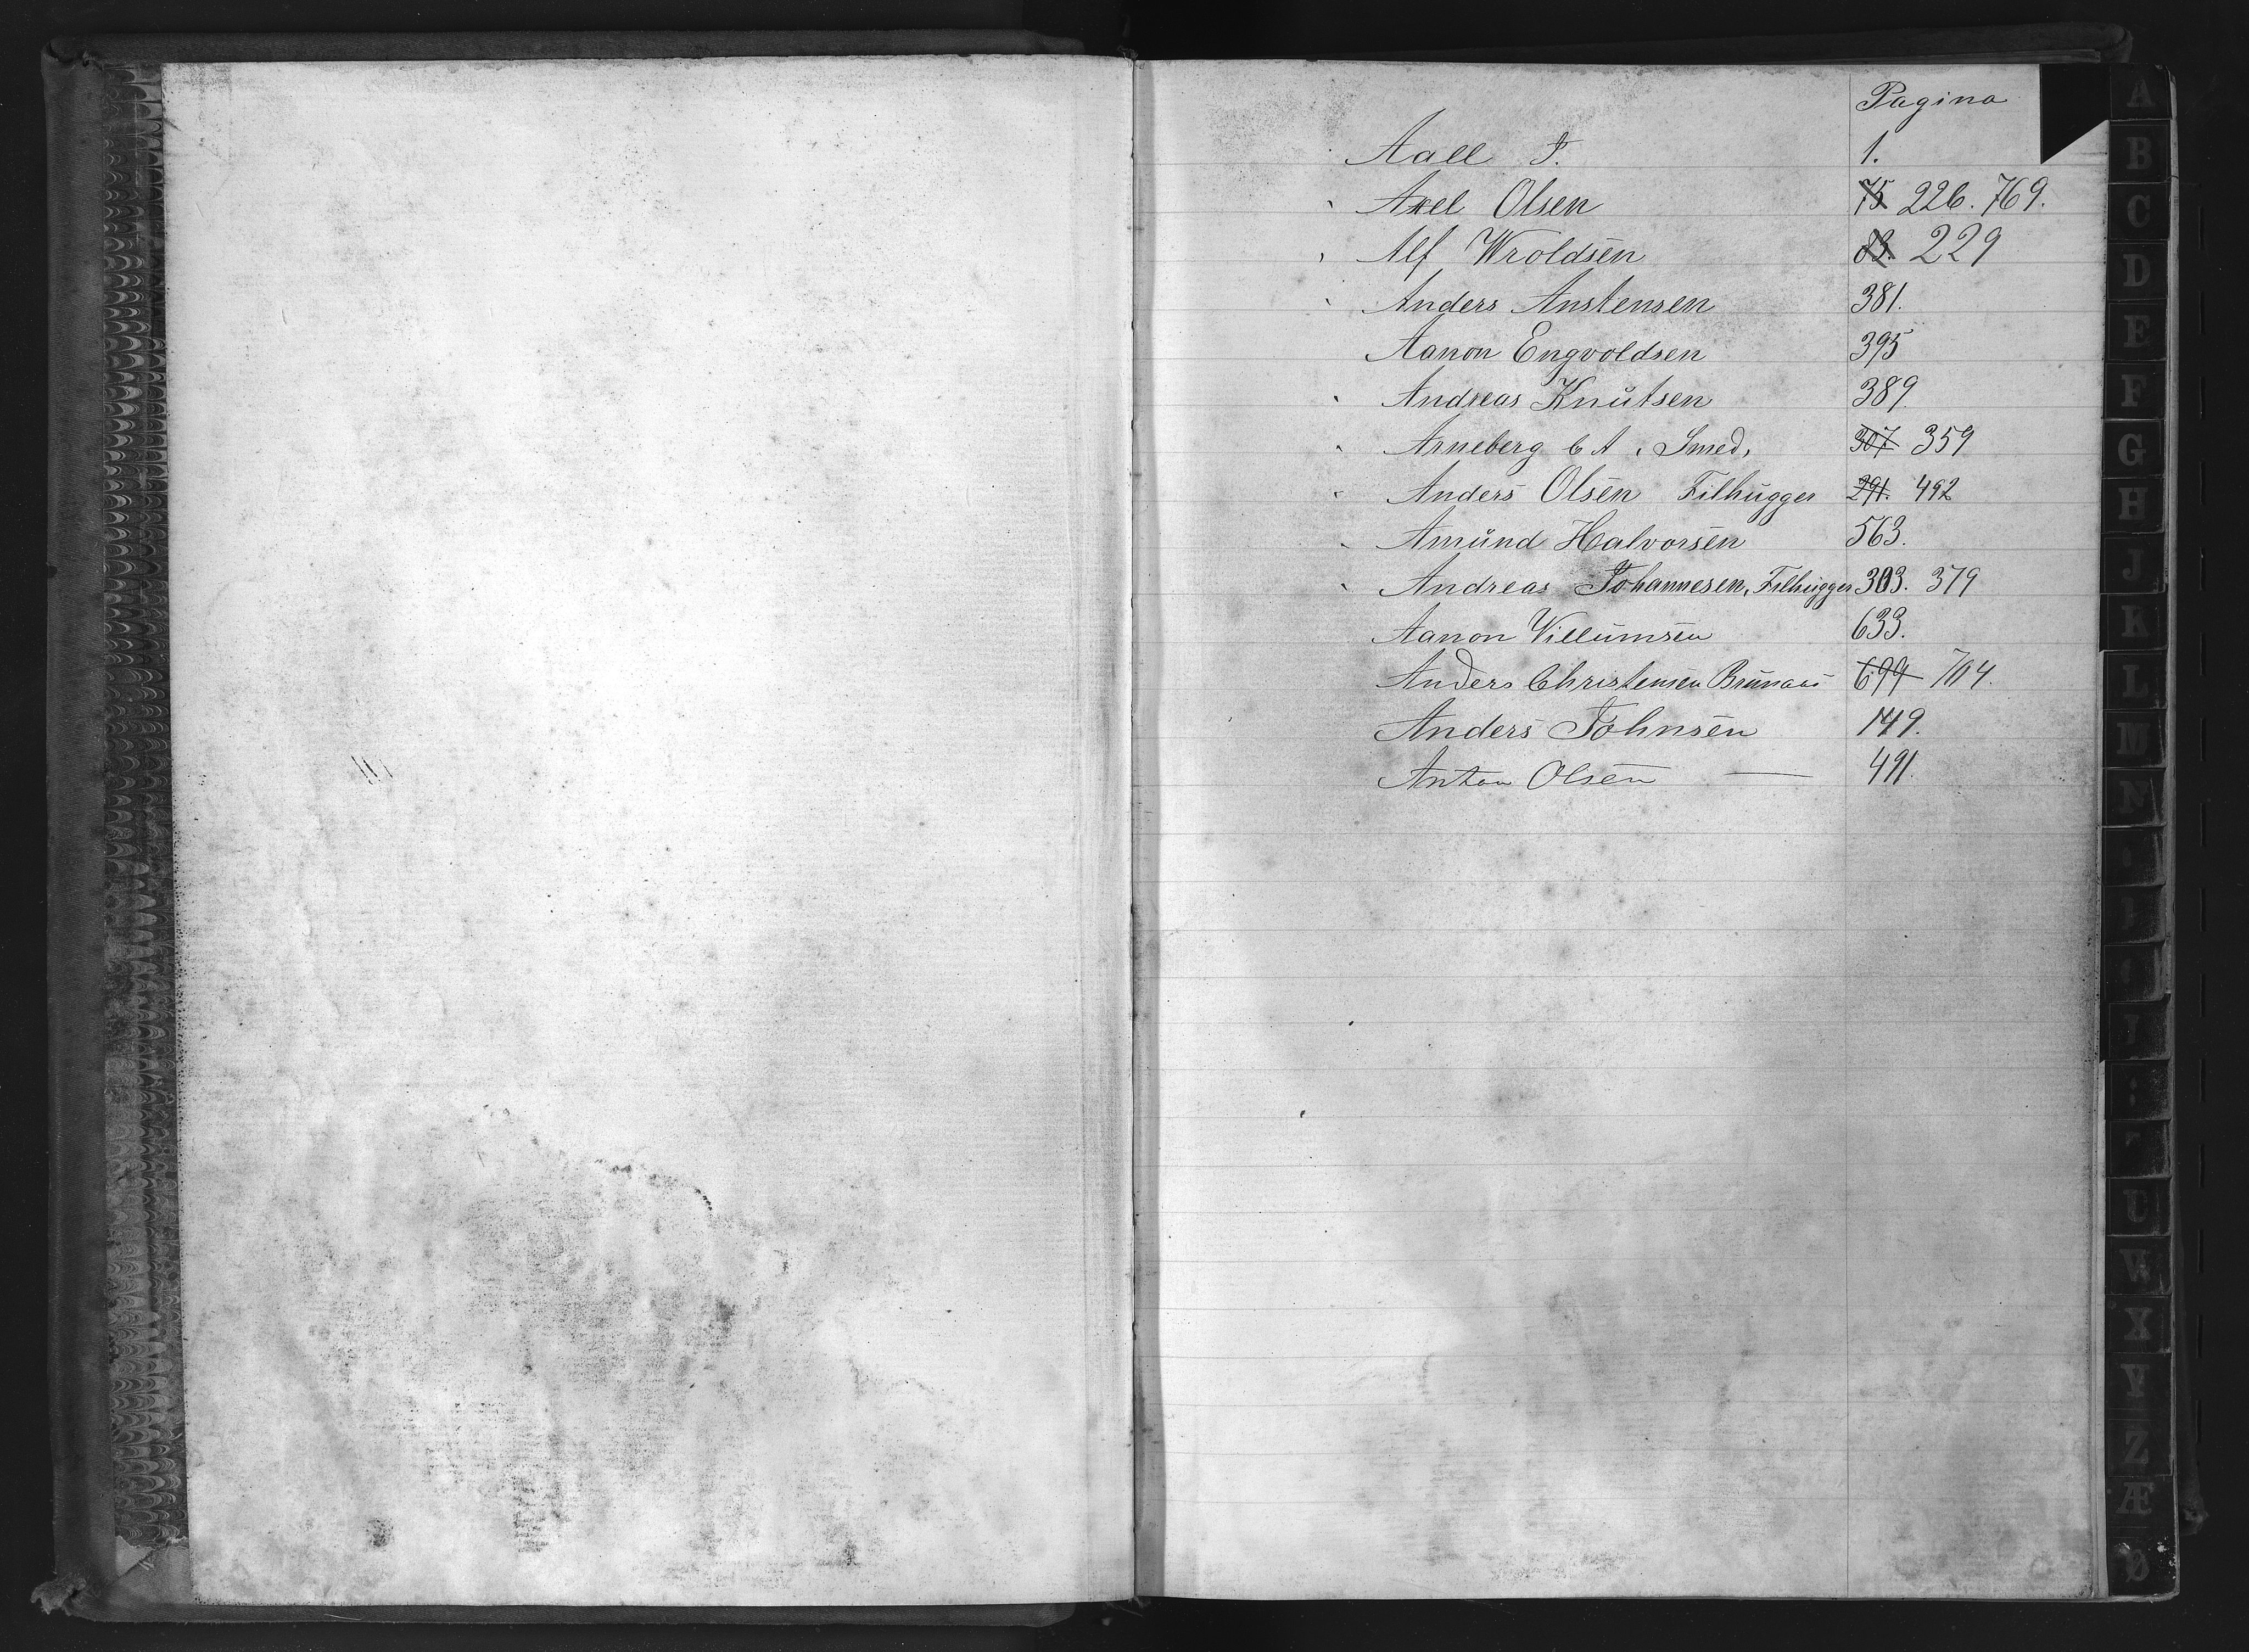 Pagina
Aall J. 1.
Axel Olsen 75 226. 769.
Alf Wroldsen 83. 229
Anders Anstensen 381.
Aanon Engvoldsen 395
Andreas Knutsen 389.
Arneberg C A. Smed, 307 359
Anders Olsen Filhugger 291. 492
Amund Halvorsen 563.
Andreas Johannesen, Filhugger 303. 379
Aanon Villumsen 633.
Anders Christensen Brunaas 699 704.
Anders Johnsen 149.
Anton Olsen — 491.
A
B
C
D
E
F
G
H
J
K
L
M
N
U
W
X
Y
Z
Æ
Ø